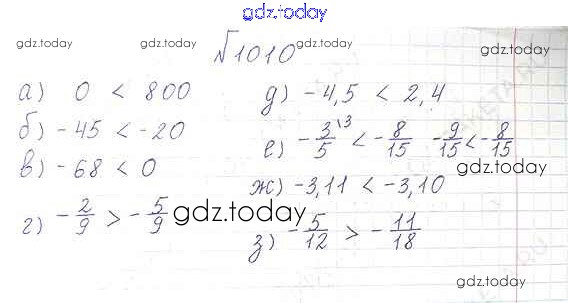 gdz.today
gdz.today gdz.today gdz.today gdz.today
№1010
а) 0 < 800
д) -4,5 < 2,4
б) -45 < -20
е) -3/5 \3 < -8/15 -9/15 < -8/15
в) -68 < 0
ж) -3,11 < -3,10
г) -2/9 > -5/9
gdz.today
з) -5/12 > -11/18
gdz.today